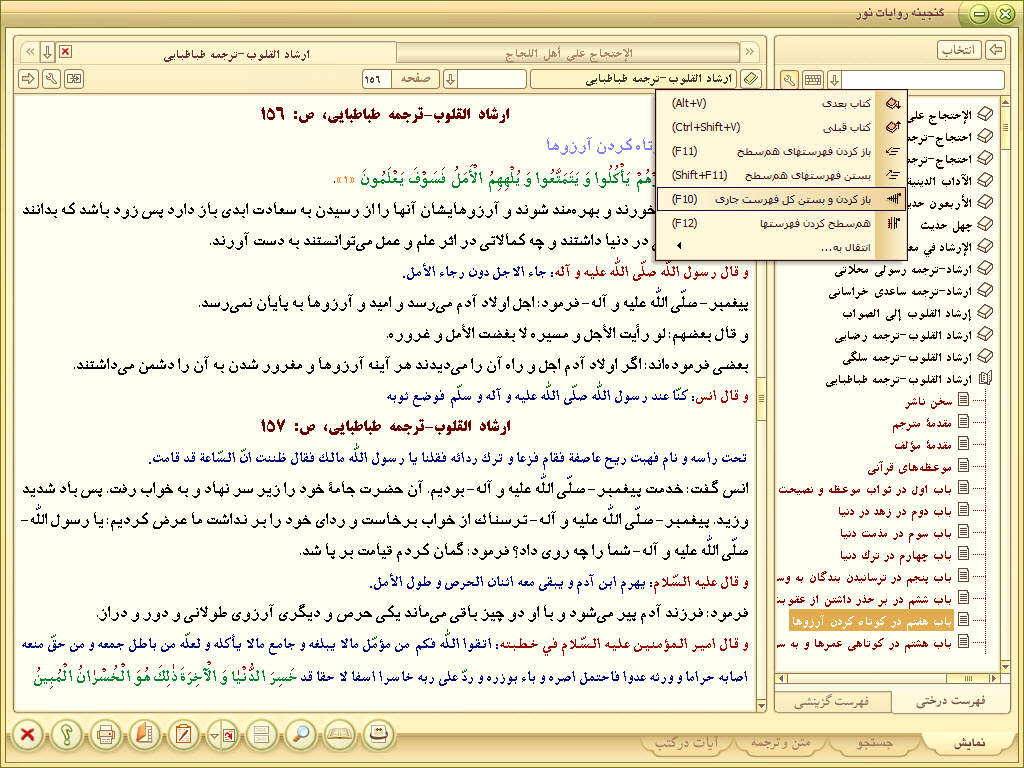 گنجینه روایات نور
انتخاب
الإحتجاج علی أهل اللجاج
ارشاد القلوب-ترجمه طباطبایی
ارشاد القلوب-ترجمه طباطبایی
صفحه
١٥٦
کتاب بعدی (Alt+V)
کتاب قبلی (Ctrl+Shift+V)
باز کردن فهرستهای هم‌سطح (F11)
بستن فهرستهای هم‌سطح (Shift+F11)
باز کردن و بستن کل فهرست جاری (F10)
هم‌سطح کردن فهرستها (F12)
انتقال به...
الإحتجاج علی
احتجاج-ترجم
احتجاج-ترجم
الآداب الدینیة
الأربعون حدی
چهل حدیث
الإرشاد في مع
ارشاد-ترجمه رسولی محلاتی
ارشاد-ترجمه ساعدی خراسانی
إرشاد القلوب إلی الصواب
ارشاد القلوب-ترجمه رضایی
ارشاد القلوب-ترجمه سلگی
ارشاد القلوب-ترجمه طباطبایی
سخن ناشر
مقدمهٔ مترجم
مقدمهٔ مؤلف
موعظه‌های قرآنی
باب اول در ثواب موعظه و نصیحت
باب دوم در زهد در دنیا
باب سوم در مذمت دنیا
باب چهارم در ترك دنیا
باب پنجم در ترسانیدن بندگان به وس
باب ششم در بر حذر داشتن از عقوبت
باب هفتم در کوتاه کردن آرزوها
باب هشتم در کوتاهی عمرها و به سر
فهرست درختی
فهرست گزینشی
ارشاد القلوب-ترجمه طباطبایی، ص: ١٥٦
تاه کردن آرزوها
رْهُمْ يَأْكُلُوا وَ يَتَمَتَّعُوا وَ يُلْهِهِمُ الْأَمَلُ فَسَوْفَ يَعْلَمُونَ «١».
خورند و بهره‌مند شوند و آرزوهایشان آنها را از رسیدن به سعادت ابدی باز دارد پس زود باشد که بدانند
در دنیا داشتند و چه کمالاتی در اثر علم و عمل می‌توانستند به دست آورند.
و قال رسول اللّه صلّی اللّه علیه و آله: جاء الاجل دون رجاء الأمل.
پیغمبر-صلّی اللّه علیه و آله-فرمود: اجل اولاد آدم می‌رسد و امید و آرزوها به پایان نمی‌رسد.
و قال بعضهم: لو رأیت الأجل و مسیره لا بغضت الأمل و غروره.
بعضی فرموده‌اند: اگر اولاد آدم اجل و راه آن را می‌دیدند هر آینه آرزوها و مغرور شدن به آن را دشمن می‌داشتند.
و قال انس: کنّا عند رسول اللّه صلّی اللّه علیه و آله و سلّم فوضع ثوبه
ارشاد القلوب-ترجمه طباطبایی، ص: ١٥٧
تحت راسه و نام فهبت ریح عاصفة فقام فزعا و ترك ردائه فقلنا یا رسول اللّه مالك فقال ظننت انّ السّاعة قد قامت.
انس گفت: خدمت پیغمبر-صلّی اللّه علیه و آله-بودیم، آن حضرت جامهٔ خود را زیر سر نهاد و به خواب رفت. پس باد شدید
وزید. پیغمبر-صلّی اللّه علیه و آله-ترسناك از خواب برخاست و ردای خود را بر نداشت ما عرض کردیم: یا رسول اللّه-
صلّی اللّه علیه و آله-شما را چه روی داد؟ فرمود: گمان کردم قیامت بر پا شد.
و قال علیه السّلام: یهرم ابن آدم و یبقی معه اثنان الحرص و طول الأمل.
فرمود: فرزند آدم پیر می‌شود و با او دو چیز باقی می‌ماند یکی حرص و دیگری آرزوی طولانی و دور و دراز.
و قال امیر المؤمنین علیه السّلام في خطبته: اتقوا اللّه فکم من مؤمّل مالا یبلغه و جامع مالا یأکله و لعلّه من باطل جمعه و من حقّ منعه
اصابه حراما و ورثه عدوا فاحتمل اصره و باء بوزره و ردّ علی ربه خاسرا اسفا لا حقا قد خَسِرَ الدُّنْيٰا وَ الْآخِرَةَ ذٰلِكَ هُوَ الْخُسْرٰانُ الْمُبِينُ
نمایش
جستجو
متن و ترجمه
آیات درکتب